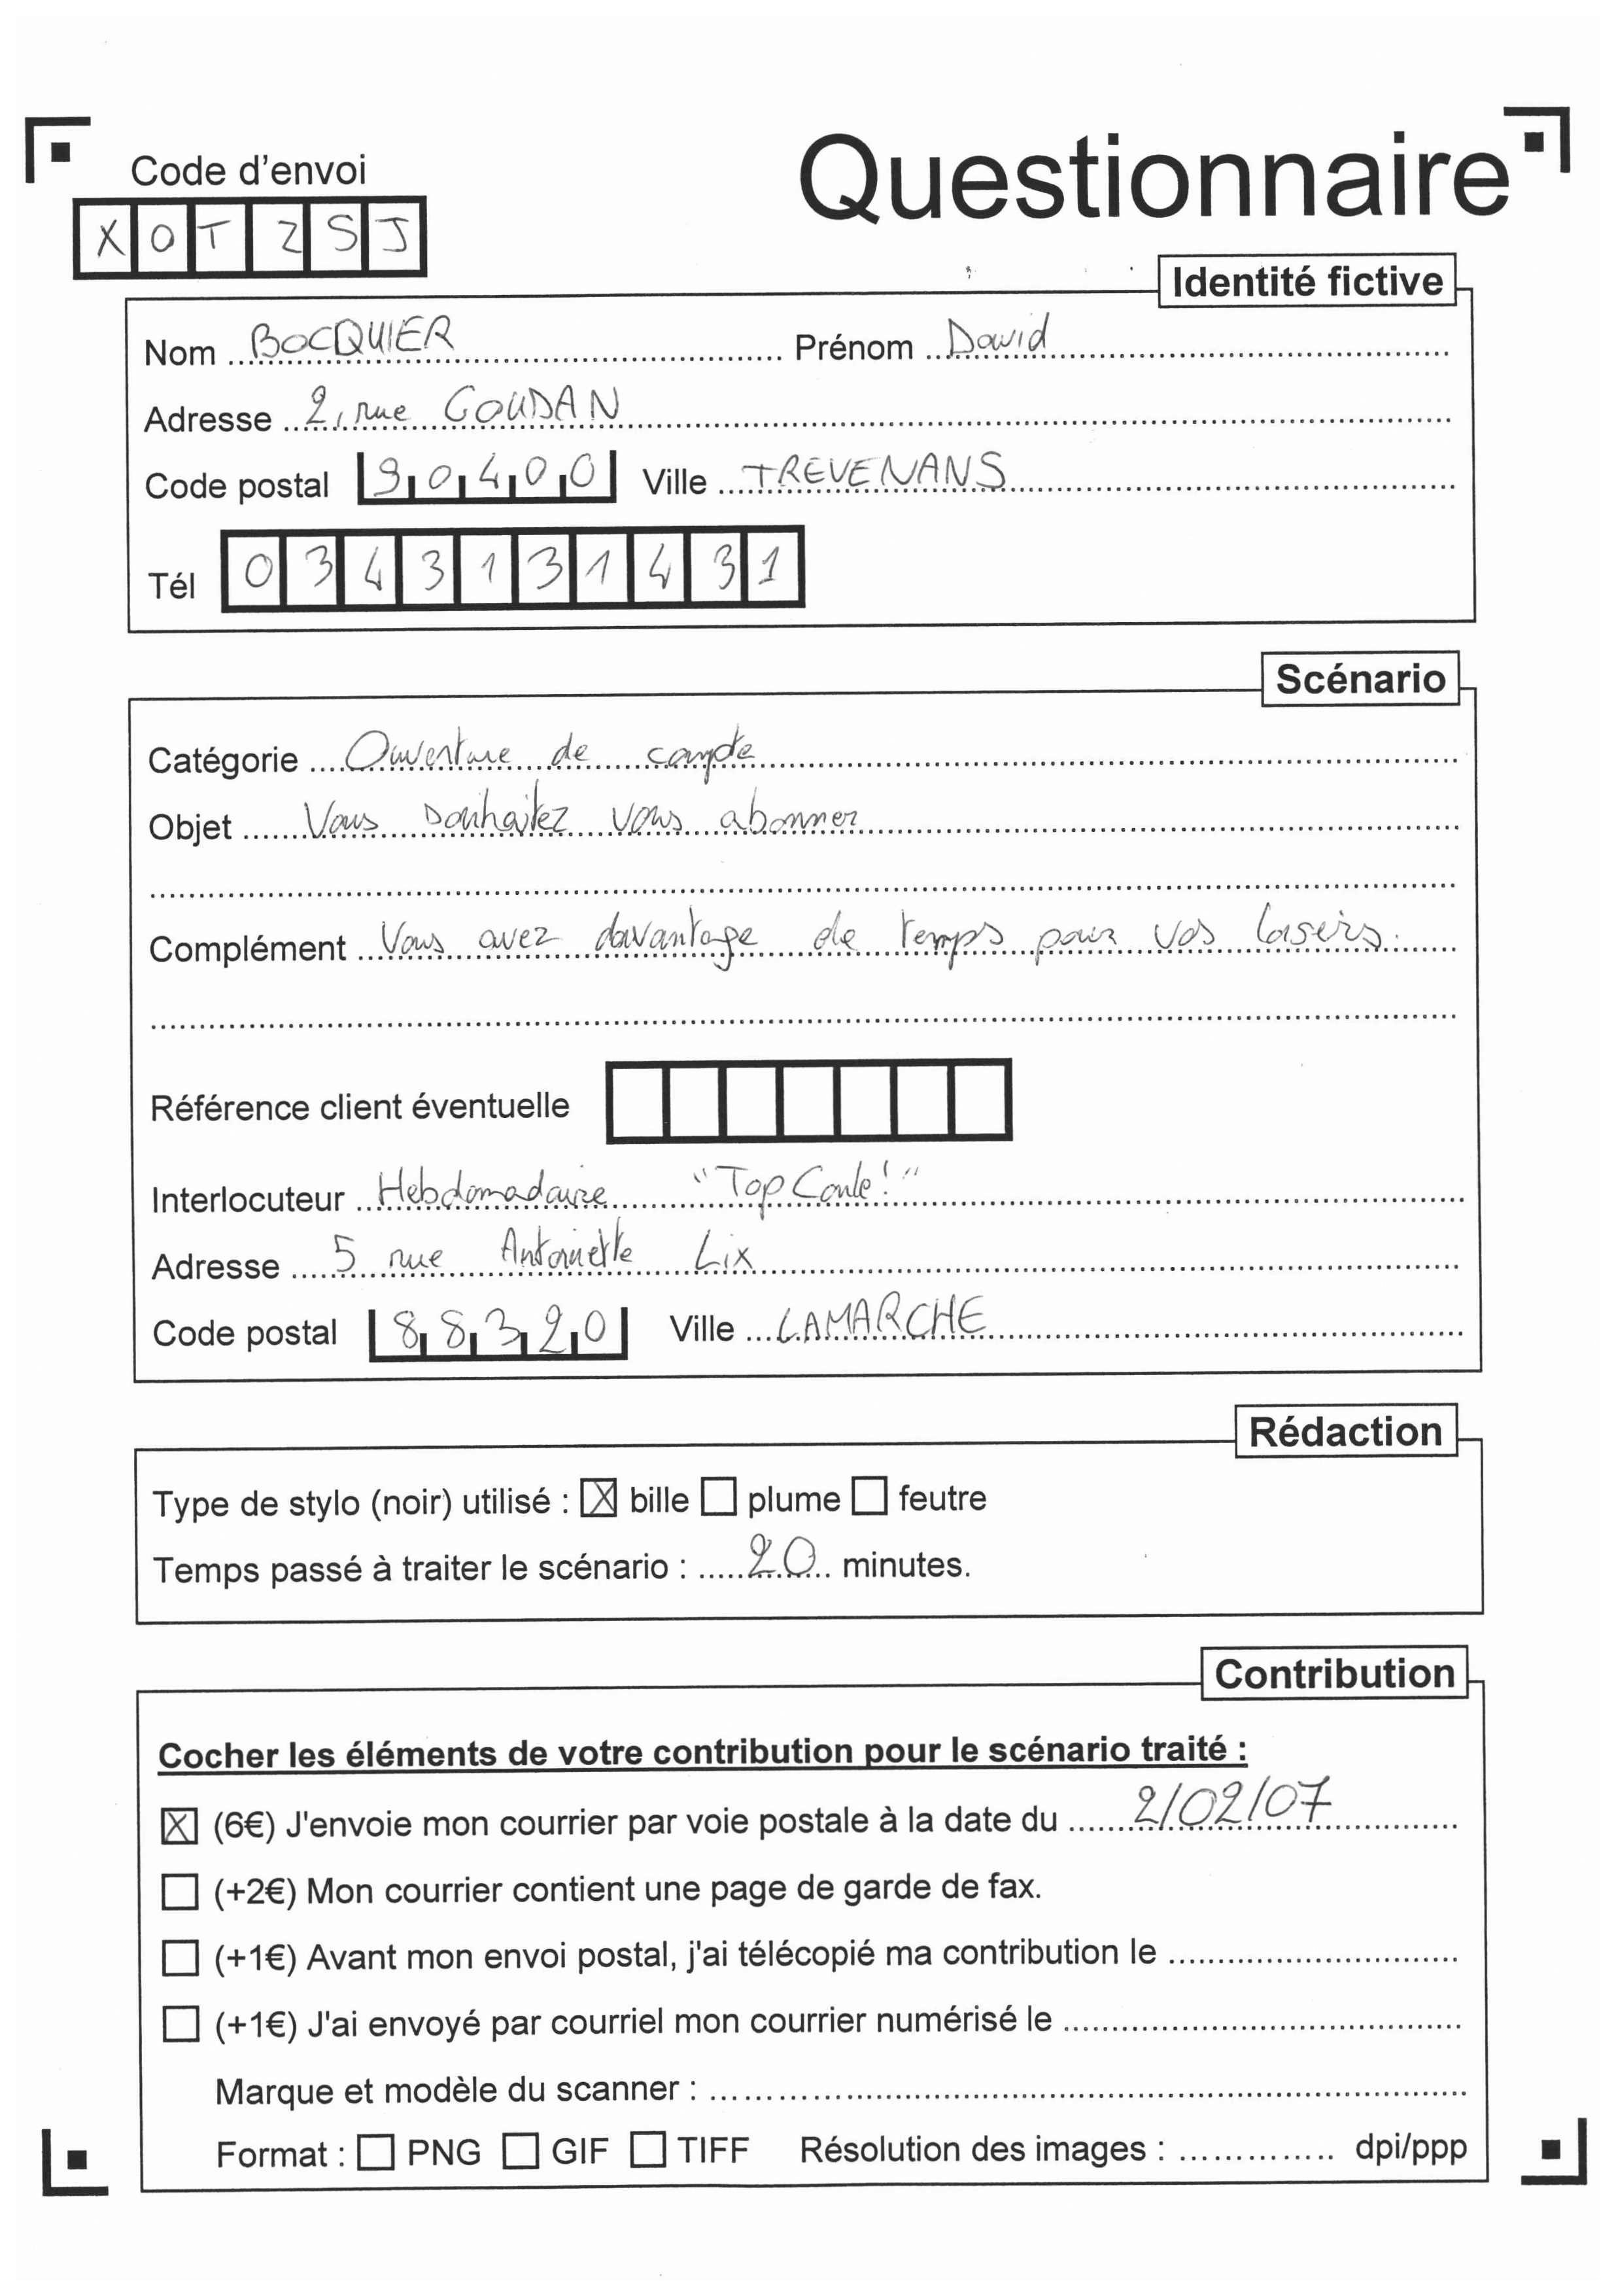 Code d'envoi
Questionnaire
XOTZSJ
Identité fictive
Nom BOCQUIER Prénom David
Adresse 2, rue GOUDAN
Code postal 90400 Ville TREVENANS
Tél 0343131431
Scénario
Catégorie Ouverture de compte
Objet Vous souhaitez vous abonner
Complément Vous avez davantage de temps pour vos loisirs.
Référence client éventuelle
Interlocuteur Hebdomadaire "Top Conte!"
Adresse 5 rue Antoinette Lix
Code postal 88320 Ville LAMARCHE
Rédaction
Type de stylo (noir) utilisé : ☒ bille ☐ plume ☐ feutre
Temps passé à traiter le scénario : 20 minutes.
Contribution
Cocher les éléments de votre contribution pour le scénario traité :
☒ (6€) J'envoie mon courrier par voie postale à la date du 2/02/07
☐ (+2€) Mon courrier contient une page de garde de fax.
☐ (+1€) Avant mon envoi postal, j'ai télécopié ma contribution le
☐ (+1€) J'ai envoyé par courriel mon courrier numérisé le
Marque et modèle du scanner :
Format : ☐ PNG ☐ GIF ☐ TIFF Résolution des images : dpi/ppp